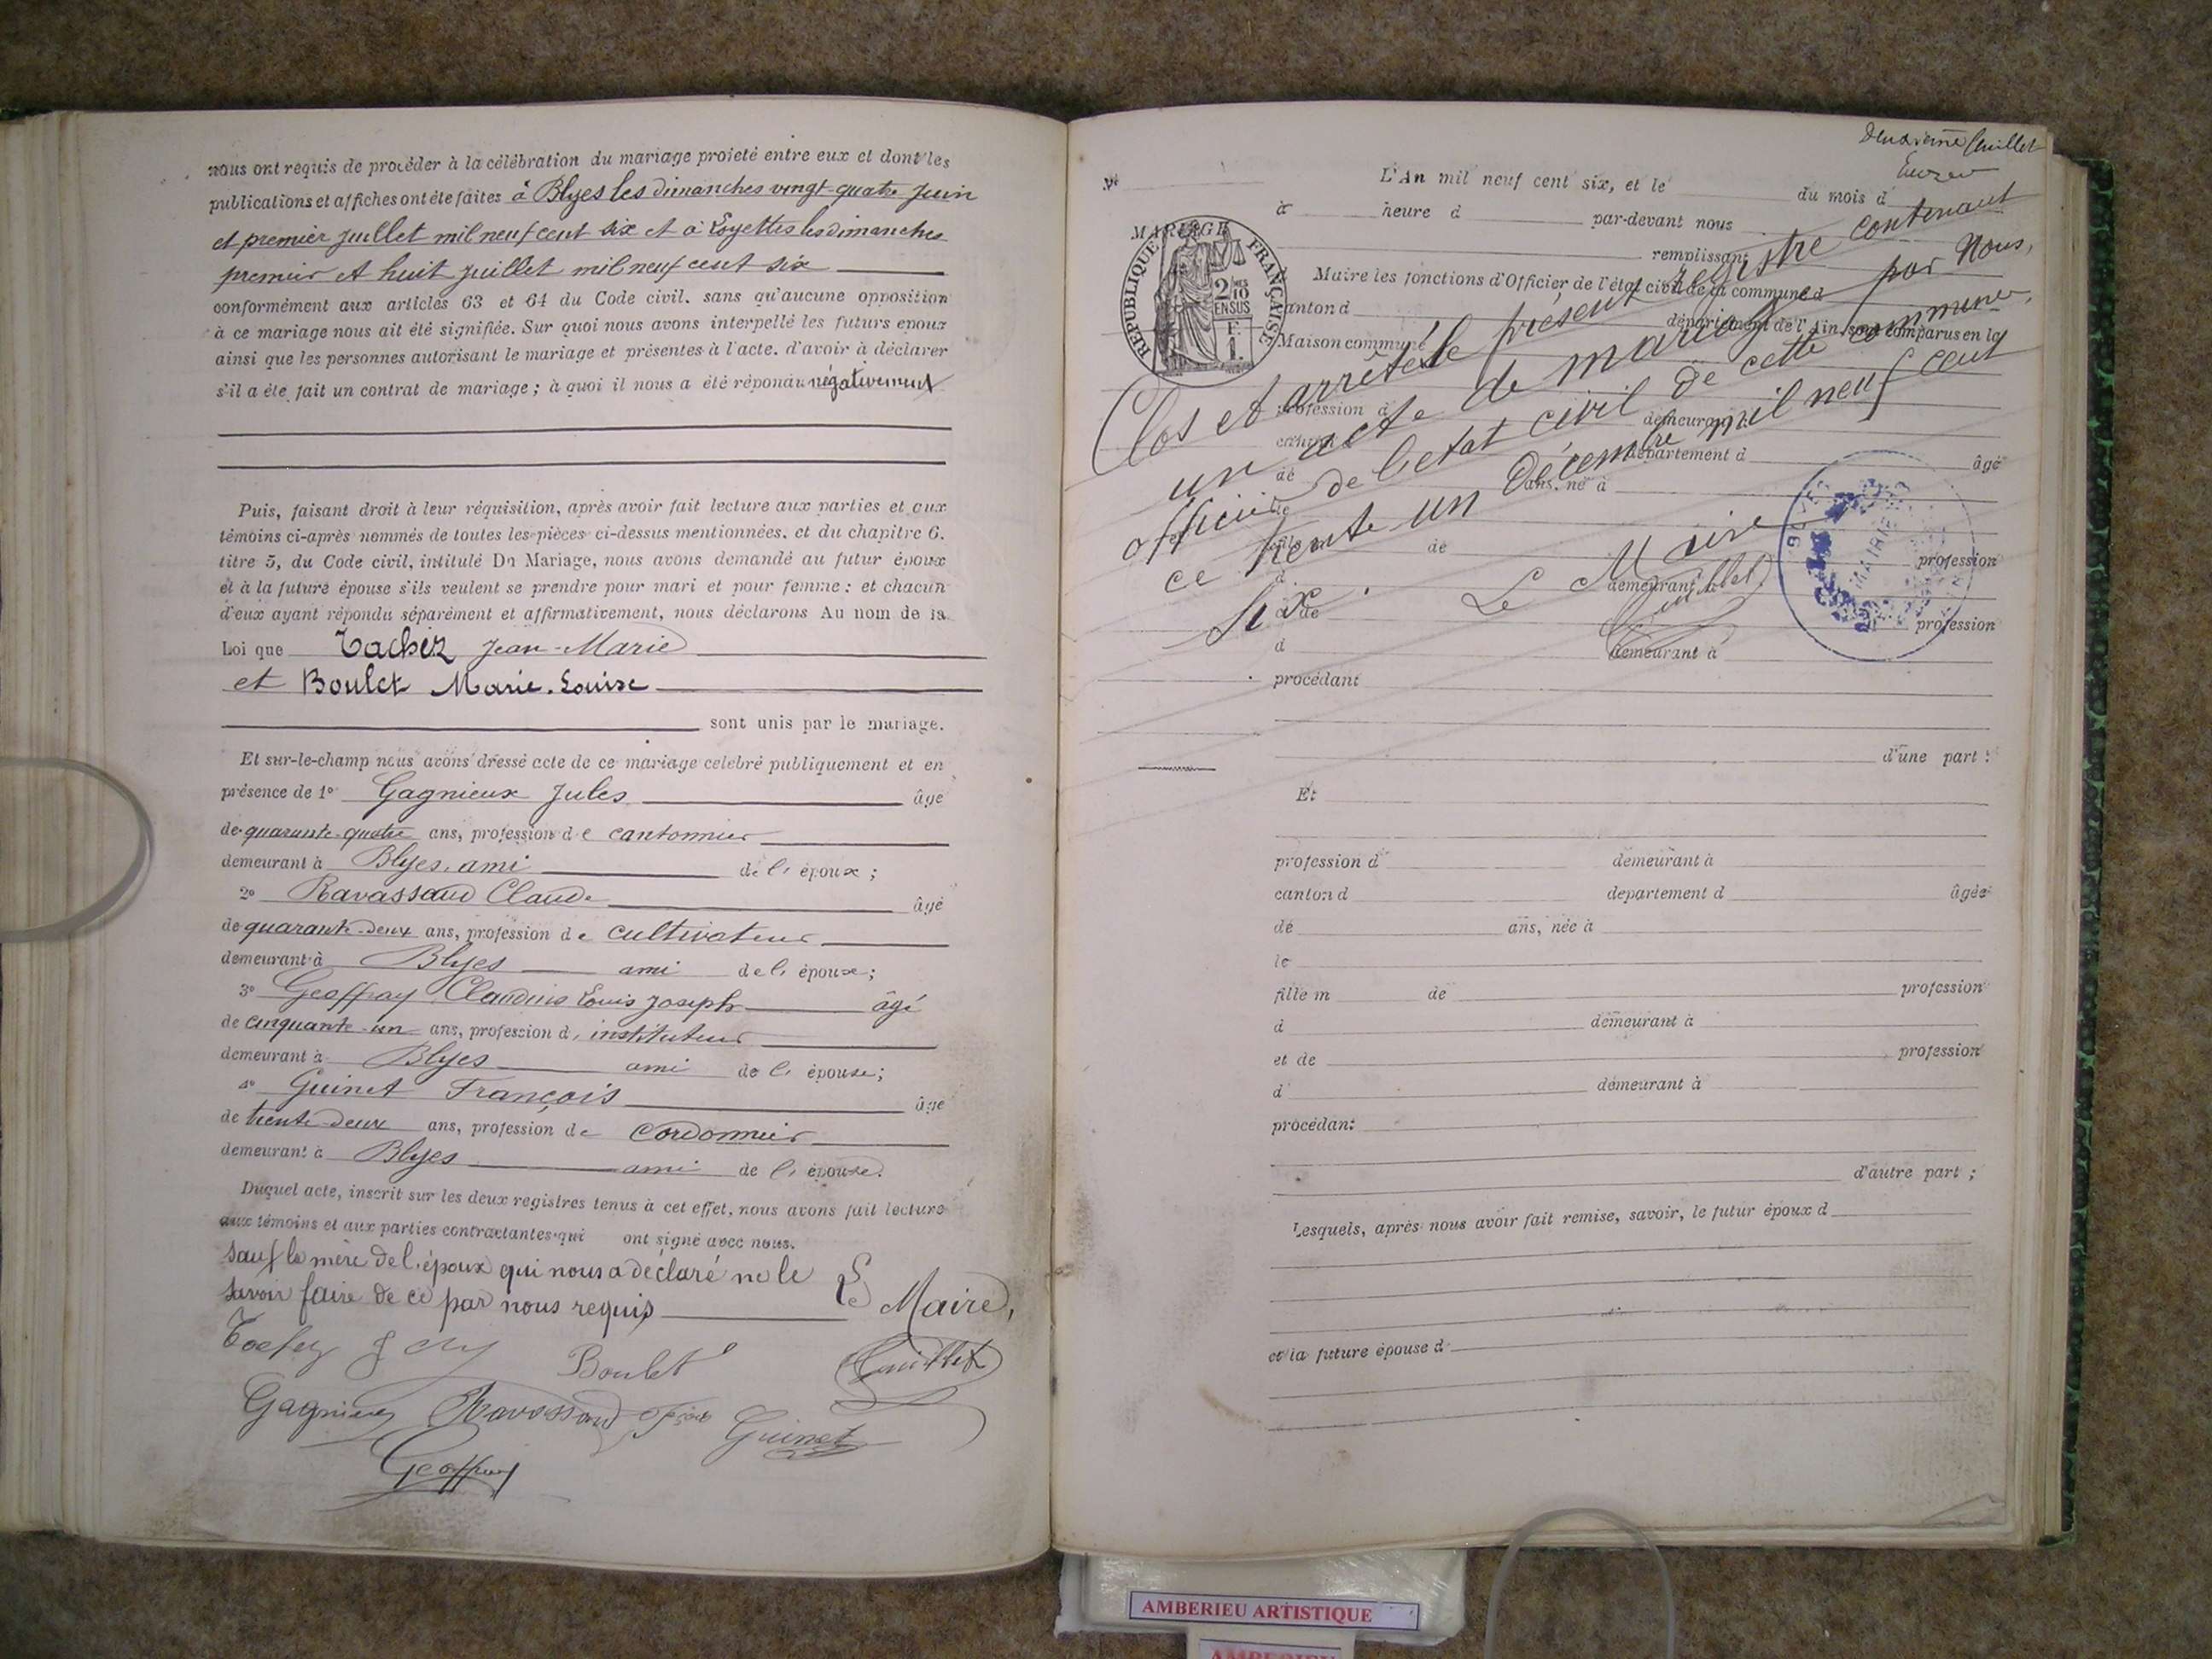 nous ont requis de procéder à la célébration du mariage projeté entre eux et dont les
publications et affiches ont été faites à Blyes les dimanches vingt-quatre Juin
et premier Juillet mil neuf cent six et à Loyettes les dimanches
premier et huit Juillet mil neuf cent six
conformément aux articles 63 et 64 du Code civil. sans qu'aucune opposition
à ce mariage nous ait été signifiée. Sur quoi nous avons interpellé les futurs époux
ainsi que les personnes autorisant le mariage et présentes à l'acte. d'avoir à déclarer
s'il a été fait un contrat de mariage ; à quoi il nous a été répondu négativement
Puis, faisant droit à leur réquisition, après avoir fait lecture aux parties et aux
témoins ci-après nommés de toutes les pièces ci-dessus mentionnées, et du chapitre 6.
titre 5, du Code civil, intitulé Du Mariage, nous avons demandé au futur époux
et à la future épouse s'ils veulent se prendre pour mari et pour femme : et chacun
d'eux ayant répondu séparément et affirmativement, nous déclarons Au nom de la
Loi que Tachez Jean-Marie
et Boulet Marie-Louise
sont unis par le mariage.
Et sur-le-champ nous avons dressé acte de ce mariage célébré publiquement et en
présence de 1° Gagnieux Jules âgé
de quarante-quatre ans, profession de cantonnier
demeurant à Blyes, ami de l'époux ;
2° Ravassaud Claude âgé
de quarante-deux ans, profession de cultivateur
demeurant à Blyes ami de l'époux ;
3° Geoffray Claudius Louis Joseph âgé
de cinquante-un ans, profession d'instituteur
demeurant à Blyes ami de l'épouse ;
4° Guinet François âgé
de trente-deux ans, profession de cordonnier
demeurant à Blyes ami de l'épouse.
Duquel acte, inscrit sur les deux registres tenus à cet effet, nous avons fait lecture
aux témoins et aux parties contractantes qui ont signé avec nous.
sauf la mère de l'époux qui nous a déclaré ne le
savoir faire de ce par nous requis
Le Maire,
Boulet
Gagnieux Ravassaud Guinet
Geoffray
deuxième feuillet
N°
L'An mil neuf cent six, et le du mois d
à heure d par-devant nous
remplissant
Maire les fonctions d'Officier de l'état civil de la commune d
canton d département de l'Ain, sont comparus en la
Maison commune
MARIAGE
RÉPUBLIQUE FRANÇAISE
2/10 EN SUS
F. 1.
Clos et arrêté le présent registre contenant
un acte de mariage par Nous,
officier de l'état civil de cette commune,
ce trente un Décembre mil neuf cent
six.
Le Maire
BLYES
MAIRIE
profession d demeurant
canton d département d âgé
de ans, né à
le
fils de profession
d demeurant à
et de profession
d demeurant à
procédant
d'une part ;
Et
profession d demeurant à
canton d département d âgée
de ans, née à
le
fille m de profession
d demeurant à
et de profession
d demeurant à
procédant
d'autre part ;
Lesquels, après nous avoir fait remise, savoir, le futur époux d
et la future épouse d
AMBERIEU ARTISTIQUE
AMBERIEU